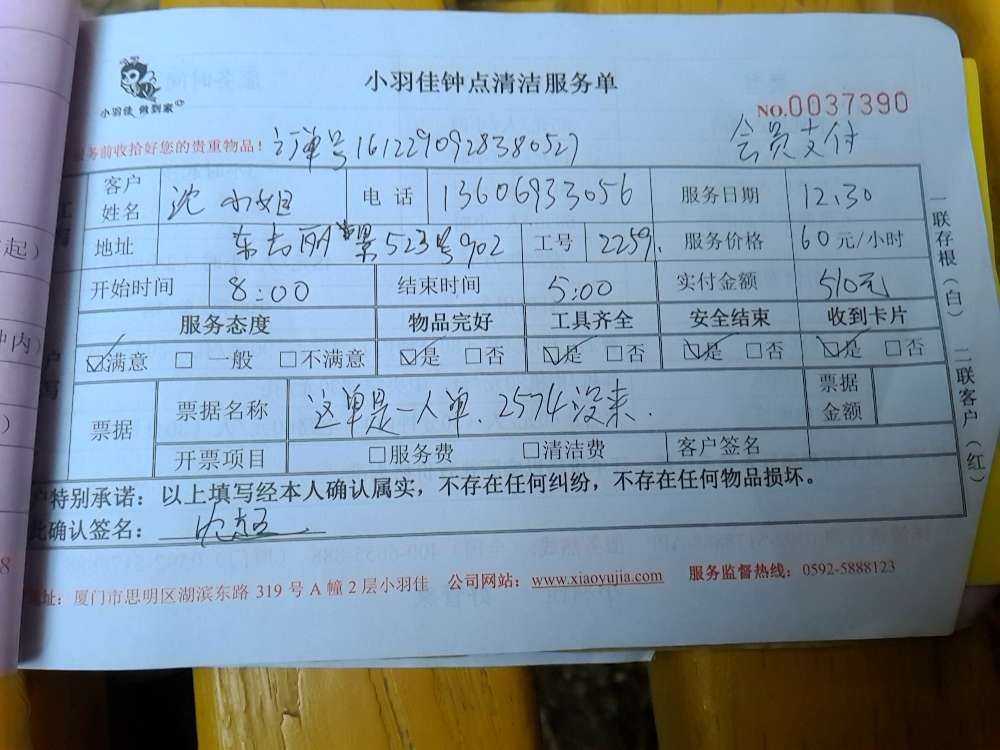 小羽佳 做到家
小羽佳钟点清洁服务单
NO.0037390
务前收拾好您的贵重物品！ 订单号1612290928380527 会员支付
客户姓名 沈小姐 电话 13606933056 服务日期 12.30
地址 东方丽景523号902 工号 2259. 服务价格 60元/小时
开始时间 8:00 结束时间 5:00 实付金额 510元
服务态度 物品完好 工具齐全 安全结束 收到卡片
☑满意 □一般 □不满意 ☑是 □否 ☑是 □否 ☑是 □否 ☑是 □否
票据 票据名称 这单是一人单、2574没来. 票据金额
开票项目 □服务费 □清洁费 客户签名
户特别承诺：以上填写经本人确认属实，不存在任何纠纷，不存在任何物品损坏。
此确认签名：
址：厦门市思明区湖滨东路 319 号 A 幢 2 层小羽佳 公司网站：www.xiaoyujia.com 服务监督热线：0592-5888123
一联存根（白） 二联客户（红）
起）
钟内）
）
8